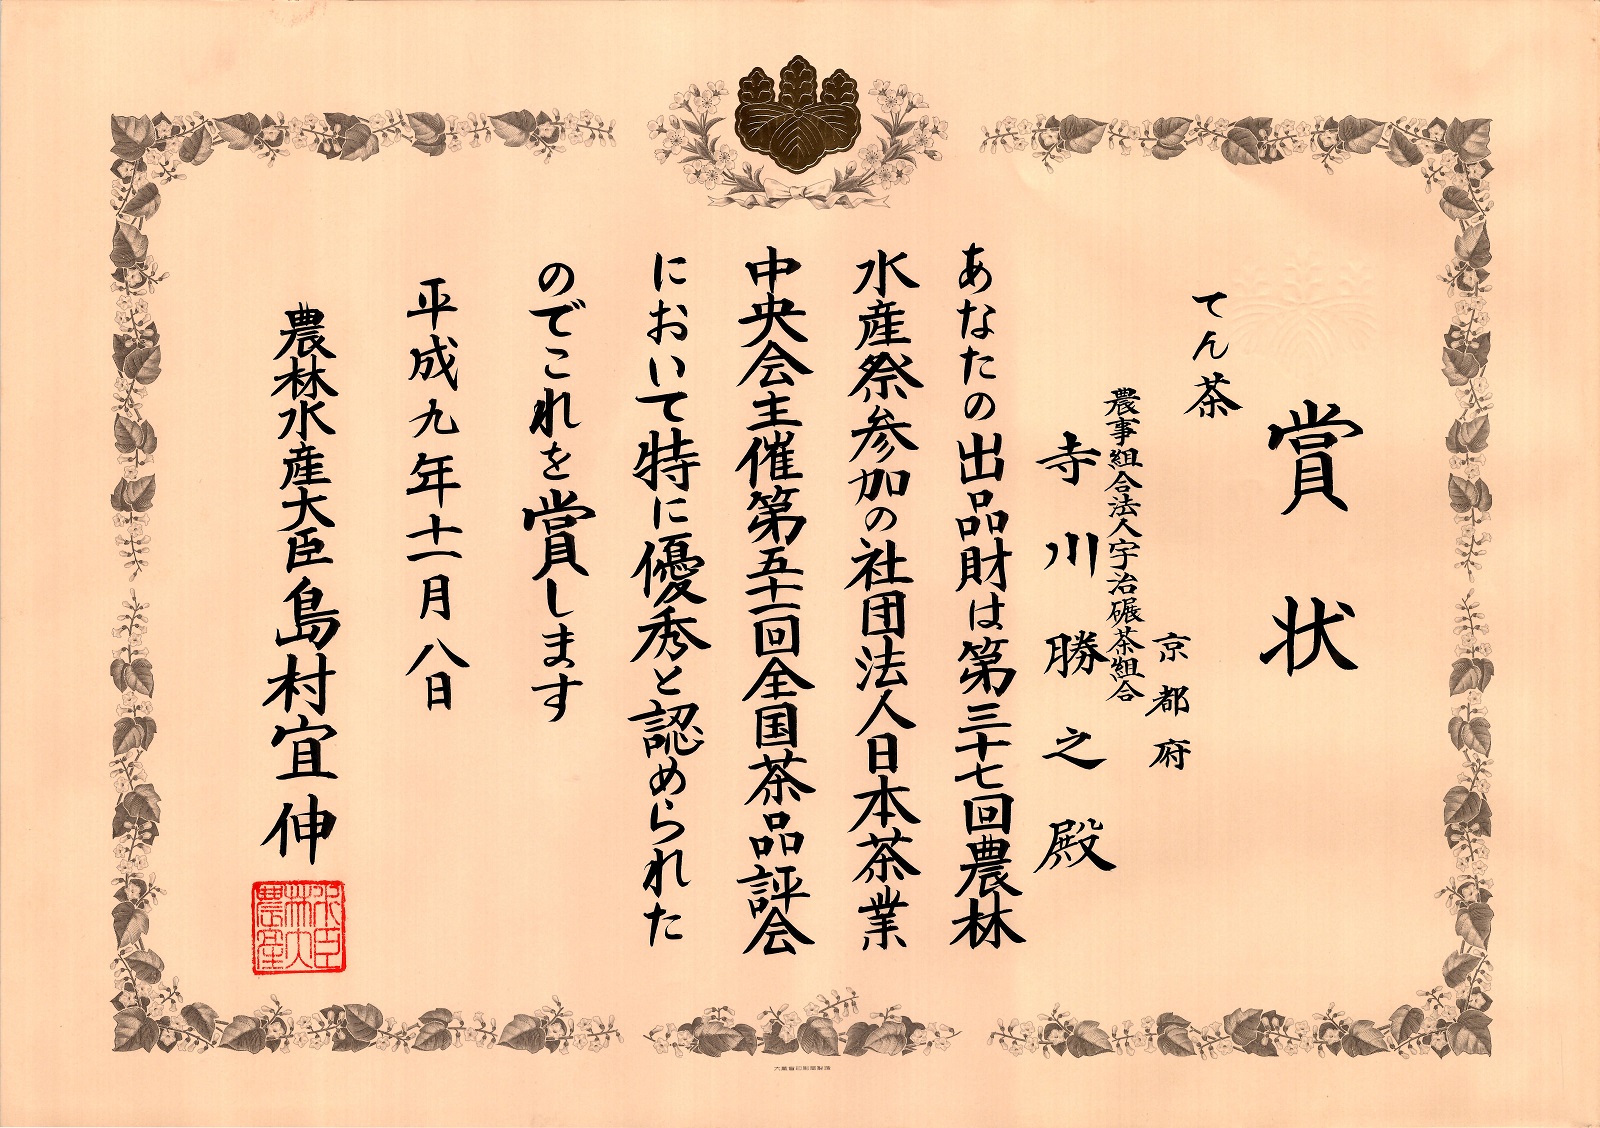 賞状
てん茶
京都府
農事組合法人宇治碾茶組合
寺川勝之殿
あなたの出品財は第三十七回農林
水産祭参加の社団法人日本茶業
中央会主催第五十一回全国茶品評会
において特に優秀と認められた
のでこれを賞します
平成九年十一月八日
農林水産大臣島村宜伸